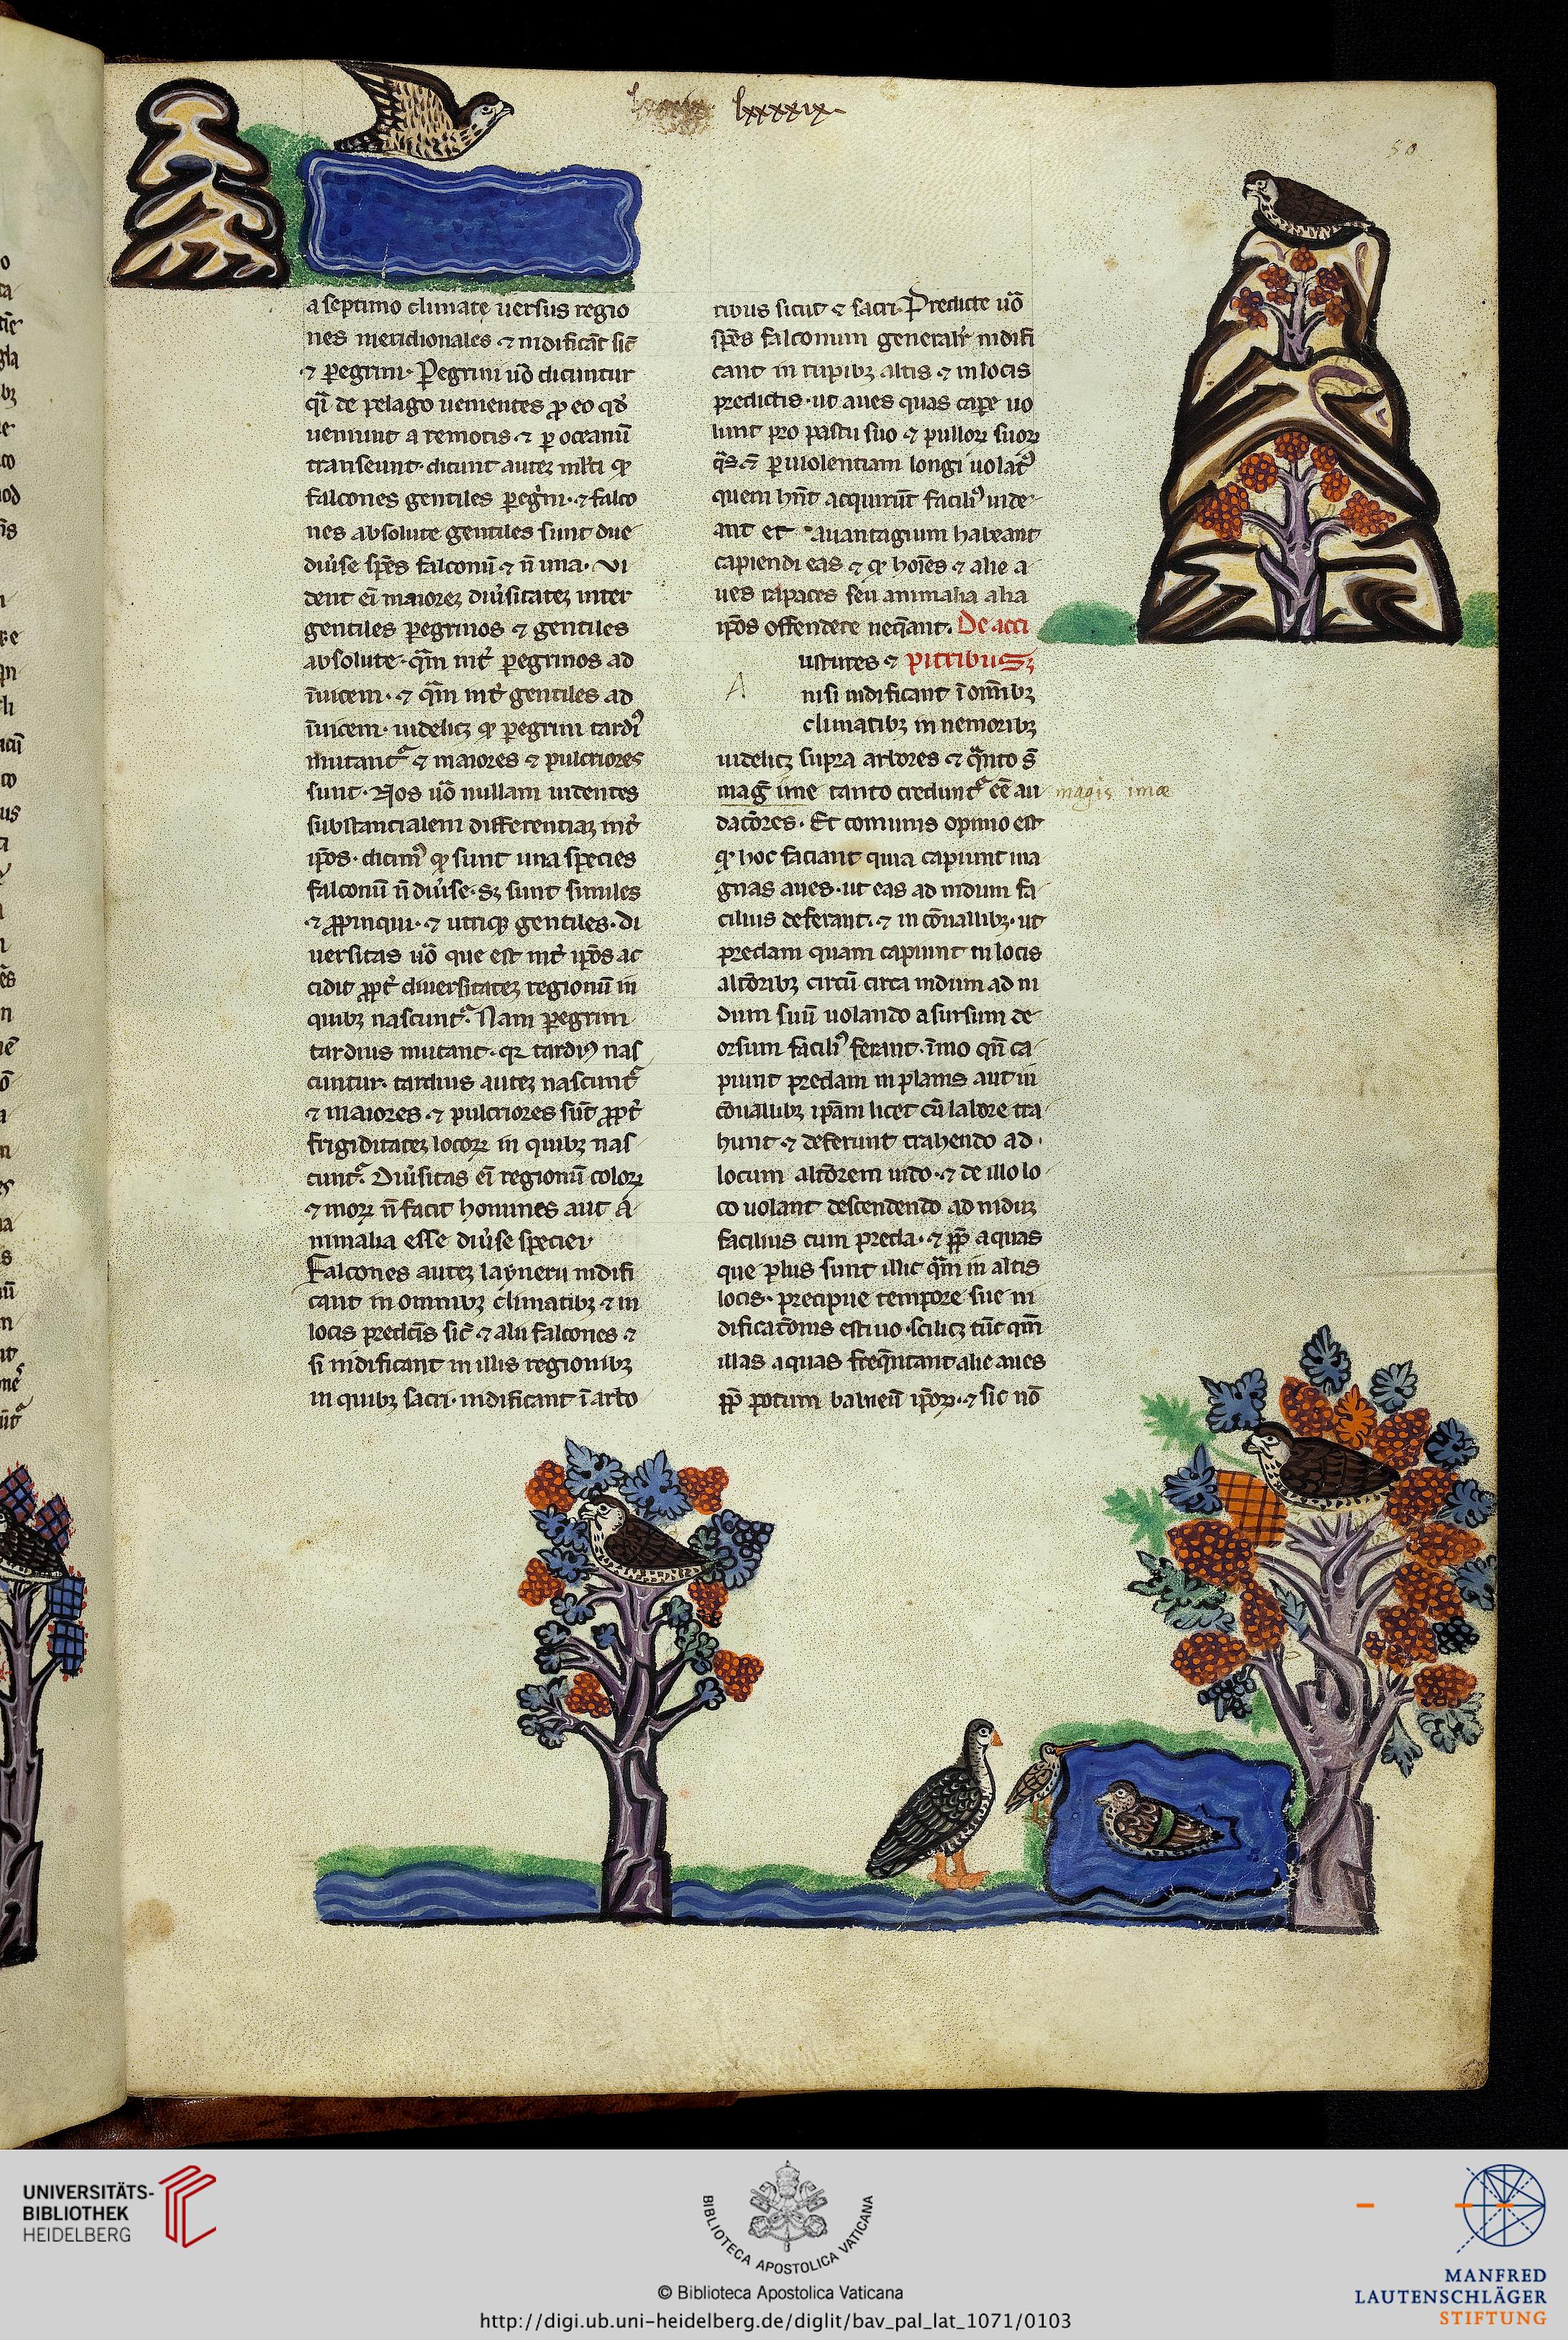 lxxxxix
50
a septimo climate uersus regio
nes meridionales ⁊ nidificāt sic̄
⁊ ꝑegrini. Ꝑegrini uō dicuntur
q̄i de pelago uenientes ꝓ eo qď
ueniunt a remotis ⁊ ꝑ oceanū
transeunt. dicunt auteꝫ ml̄ti ꝙ
falcones gentiles ꝑeg̓ni. ⁊ falco
nes absolute gentiles sunt due
diu̓se sp̄es falconū ⁊ n̄ una. Vi
dent eī maioreꝫ diu̓sitateꝫ inter
gentiles ꝑegrinos ⁊ gentiles
absolute. qᷓm int̓ ꝑegrinos ad
īuicem. ⁊ qᷓm int̓ gentiles ad
īuicem. uidelicꝫ ꝙ ꝑegrini tardi᾿
mutantᷣ ⁊ maiores ⁊ pulcriores
sunt. Nos uō nullam uidentes
substancialem differentiaꝫ int̓
ip̄os. dicim᾿ ꝙ sunt una species
falconū n̄ diu̓se. sꝫ sunt similes
⁊ ꝓpinqui. ⁊ utriqꝫ gentiles. Di
uersitas uō que est int̓ ip̄os ac
cidit ꝓpt̓ diuersitateꝫ regionū in
quibꝫ nascuntᷣ. Nam ꝑegrini
tardius mutant. qꝛ tardiꝰ nas
cuntur. tardius auteꝫ nascuntᷣ
⁊ maiores ⁊ pulcriores sūt ꝓpt̓
frigiditateꝫ locoꝝ in quibꝫ nas
cuntᷣ. Diu̓sitas eī regionū coloꝝ
⁊ moꝝ n̄ facit homines aut a
nimalia esse diu̓se speciei
Falcones auteꝫ laynerii nidifi
cant in omnibꝫ climatibꝫ ⁊ in
locis predc̄is sic̄ ⁊ alii falcones ⁊
si nidificant in illis regionibꝫ
in quibꝫ sacri. nidificant ī arbo
ribus sicut ⁊ sacri. Predicte uō
sp̄es falconum generalr̄ nidifi
cant in rupibꝫ altis ⁊ in locis
predictis. ut aues quas caꝑe uo
lunt pro pastu suo ⁊ pulloꝝ suoꝝ
ꝑ uiolentiam longi uolat᾿
quem hn̄t acquirūt facili᾿ uide
ant et auantagium habeant
capiendi eas ⁊ ꝙ hoīes ⁊ alie a
ues rapaces seu animalia alia
ip̄os offendere neq̄ant. De acci
pitribusꝫ
ustures ⁊
nisi nidificant ī om̄ibꝫ
A
climatibꝫ in nemoribꝫ
uidelicꝫ supra arbores ⁊ qᷓnto s̄
mag̓ ime tanto credunᷣt eē au
magis imæ
datōres. Et comunis opinio est
ꝙ hoc faciant quia capiunt ma
gnas aues. ut eas ad nidum fa
cilius deferant. ⁊ in cōuallibꝫ. ut
predam quam capiunt in locis
altōribꝫ circū circa nidum ad ni
dum suū uolando a sursum de
orsum facili᾿ ferant. īmo qn̄ ca
piunt predam in planis aut in
cōuallibꝫ ip̄am licet cū labore tra
hunt ⁊ deferunt trahendo ad
locum altōrem nido. ⁊ de illo lo
co uolant descendendo ad niduꝫ
facilius cum preda. ⁊ ꝓp̄ aquas
que plus sunt illic qᷓm in altis
locis. precipue tempore sue ni
dificatōnis estiuo. scilicꝫ tūc qm̄
illas aquas freq̄ntant alie aues
ꝓp̄ potum balneū ip̄oꝝ. ⁊ sic nō
UNIVERSITÄTS-
BIBLIOTHEK
HEIDELBERG
BIBLIOTECA APOSTOLICA VATICANA
© Biblioteca Apostolica Vaticana
http://digi.ub.uni-heidelberg.de/diglit/bav_pal_lat_1071/0103
MANFRED
LAUTENSCHLÄGER
STIFTUNG